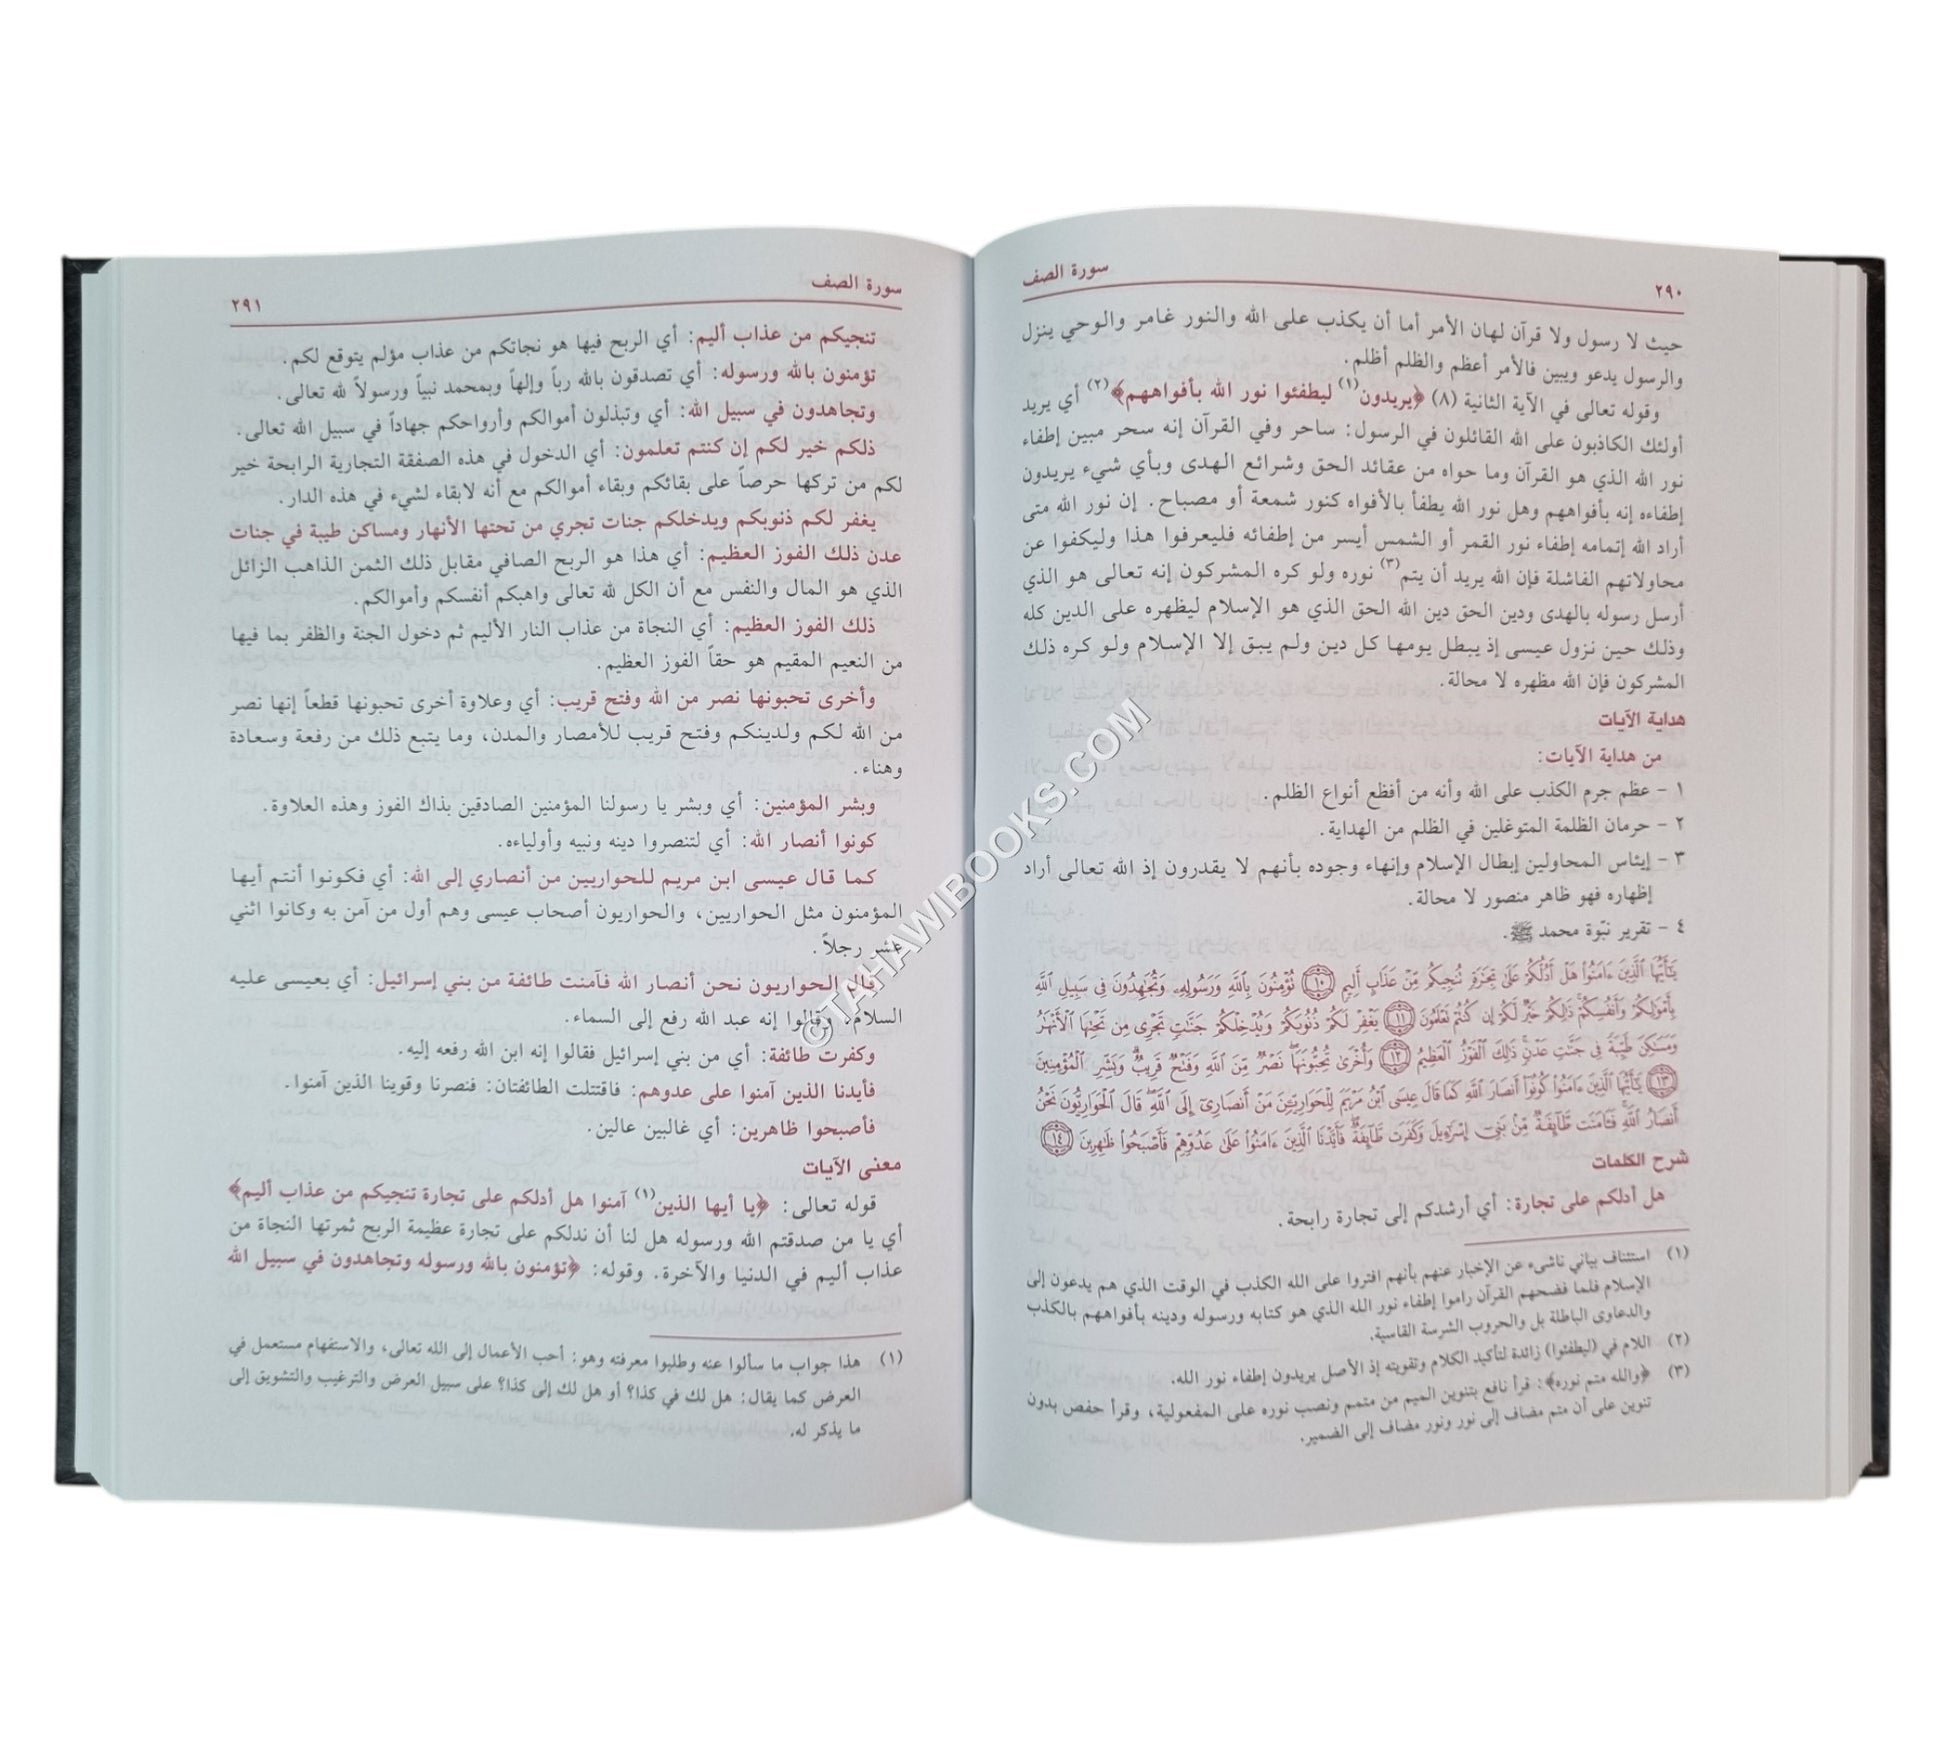 ٢٩٠ سورة الصف
حيث لا رسول ولا قرآن لهان الأمر أما أن يكذب على الله والنور غامر والوحي ينزل
والرسول يدعو ويبين فالأمر أعظم والظلم أظلم.
وقوله تعالى في الآية الثانية (٨) ﴿يريدون(١) ليطفئوا نور الله بأفواههم﴾(٢) أي يريد
أولئك الكاذبون على الله القائلون في الرسول: ساحر وفي القرآن إنه سحر مبين إطفاء
نور الله الذي هو القرآن وما حواه من عقائد الحق وشرائع الهدى وبأي شيء يريدون
إطفاءه إنه بأفواههم وهل نور الله يطفأ بالأفواه كنور شمعة أو مصباح. إن نور الله متى
أراد الله إتمامه إطفاء نور القمر أو الشمس أيسر من إطفائه فليعرفوا هذا وليكفوا عن
محاولاتهم الفاشلة فإن الله يريد أن يتم(٣) نوره ولو كره المشركون إنه تعالى هو الذي
أرسل رسوله بالهدى ودين الحق دين الله الحق الذي هو الإسلام ليظهره على الدين كله
وذلك حين نزول عيسى إذ يبطل يومها كل دين ولم يبق إلا الإسلام ولو كره ذلك
المشركون فإن الله مظهره لا محالة.
هداية الآيات
من هداية الآيات:
١ - عظم جرم الكذب على الله وأنه من أفظع أنواع الظلم.
٢ - حرمان الظلمة المتوغلين في الظلم من الهداية.
٣ - إيئاس المحاولين إبطال الإسلام وإنهاء وجوده بأنهم لا يقدرون إذ الله تعالى أراد
إظهاره فهو ظاهر منصور لا محالة.
٤ - تقرير نبّوة محمد ﷺ.
يَٰٓأَيُّهَا ٱلَّذِينَ ءَامَنُوا۟ هَلْ أَدُلُّكُمْ عَلَىٰ تِجَٰرَةٍ تُنجِيكُم مِّنْ عَذَابٍ أَلِيمٍ ١٠ تُؤْمِنُونَ بِٱللَّهِ وَرَسُولِهِۦ وَتُجَٰهِدُونَ فِى سَبِيلِ ٱللَّهِ
بِأَمْوَٰلِكُمْ وَأَنفُسِكُمْ ۚ ذَٰلِكُمْ خَيْرٌ لَّكُمْ إِن كُنتُمْ تَعْلَمُونَ ١١ يَغْفِرْ لَكُمْ ذُنُوبَكُمْ وَيُدْخِلْكُمْ جَنَّٰتٍ تَجْرِى مِن تَحْتِهَا ٱلْأَنْهَٰرُ
وَمَسَٰكِنَ طَيِّبَةً فِى جَنَّٰتِ عَدْنٍ ۚ ذَٰلِكَ ٱلْفَوْزُ ٱلْعَظِيمُ ١٢ وَأُخْرَىٰ تُحِبُّونَهَا ۖ نَصْرٌ مِّنَ ٱللَّهِ وَفَتْحٌ قَرِيبٌ ۗ وَبَشِّرِ ٱلْمُؤْمِنِينَ
١٣ يَٰٓأَيُّهَا ٱلَّذِينَ ءَامَنُوا۟ كُونُوٓا۟ أَنصَارَ ٱللَّهِ كَمَا قَالَ عِيسَى ٱبْنُ مَرْيَمَ لِلْحَوَارِيِّۦنَ مَنْ أَنصَارِىٓ إِلَى ٱللَّهِ ۖ قَالَ ٱلْحَوَارِيُّونَ نَحْنُ
أَنصَارُ ٱللَّهِ ۖ فَـَٔامَنَت طَّآئِفَةٌ مِّنۢ بَنِىٓ إِسْرَٰٓءِيلَ وَكَفَرَت طَّآئِفَةٌ ۖ فَأَيَّدْنَا ٱلَّذِينَ ءَامَنُوا۟ عَلَىٰ عَدُوِّهِمْ فَأَصْبَحُوا۟ ظَٰهِرِينَ ١٤
شرح الكلمات
هل أدلكم على تجارة: أي أرشدكم إلى تجارة رابحة.
(١) استئناف بياني ناشىء عن الإخبار عنهم بأنهم افتروا على الله الكذب في الوقت الذي هم يدعون إلى
الإسلام فلما فضحهم القرآن راموا إطفاء نور الله الذي هو كتابه ورسوله ودينه بأفواههم بالكذب
والدعاوى الباطلة بل والحروب الشرسة القاسية.
(٢) اللام في (ليطفئوا) زائدة لتأكيد الكلام وتقويته إذ الأصل يريدون إطفاء نور الله.
(٣) ﴿والله متم نوره﴾: قرأ نافع بتنوين الميم من متمم ونصب نوره على المفعولية، وقرأ حفص بدون
تنوين على أن متم مضاف إلى نور ونور مضاف إلى الضمير.
سورة الصف ٢٩١
تنجيكم من عذاب أليم: أي الربح فيها هو نجاتكم من عذاب مؤلم يتوقع لكم.
تؤمنون بالله ورسوله: أي تصدقون بالله رباً وإلهاً وبمحمد نبياً ورسولاً لله تعالى.
وتجاهدون في سبيل الله: أي وتبذلون أموالكم وأرواحكم جهاداً في سبيل الله تعالى.
ذلكم خير لكم إن كنتم تعلمون: أي الدخول في هذه الصفقة التجارية الرابحة خير
لكم من تركها حرصاً على بقائكم وبقاء أموالكم مع أنه لابقاء لشيء في هذه الدار.
يغفر لكم ذنوبكم ويدخلكم جنات تجري من تحتها الأنهار ومساكن طيبة في جنات
عدن ذلك الفوز العظيم: أي هذا هو الربح الصافي مقابل ذلك الثمن الذاهب الزائل
الذي هو المال والنفس مع أن الكل لله تعالى واهبكم أنفسكم وأموالكم.
ذلك الفوز العظيم: أي النجاة من عذاب النار الأليم ثم دخول الجنة والظفر بما فيها
من النعيم المقيم هو حقاً الفوز العظيم.
وأخرى تحبونها نصر من الله وفتح قريب: أي وعلاوة أخرى تحبونها قطعاً إنها نصر
من الله لكم ولدينكم وفتح قريب للأمصار والمدن، وما يتبع ذلك من رفعة وسعادة
وهناء.
وبشر المؤمنين: أي وبشر يا رسولنا المؤمنين الصادقين بذاك الفوز وهذه العلاوة.
كونوا أنصار الله: أي لتنصروا دينه ونبيه وأولياءه.
كما قال عيسى ابن مريم للحواريين من أنصاري إلى الله: أي فكونوا أنتم أيها
المؤمنون مثل الحواريين، والحواريون أصحاب عيسى وهم أول من آمن به وكانوا اثني
عشر رجلاً.
قال الحواريون نحن أنصار الله فآمنت طائفة من بني إسرائيل: أي بعيسى عليه
السلام، وقالوا إنه عبد الله رفع إلى السماء.
وكفرت طائفة: أي من بني إسرائيل فقالوا إنه ابن الله رفعه إليه.
فأيدنا الذين آمنوا على عدوهم: فاقتتلت الطائفتان: فنصرنا وقوينا الذين آمنوا.
فأصبحوا ظاهرين: أي غالبين عالين.
معنى الآيات
قوله تعالى: ﴿يا أيها الذين(١) آمنوا هل أدلكم على تجارة تنجيكم من عذاب أليم﴾
أي يا من صدقتم الله ورسوله هل لنا أن ندلكم على تجارة عظيمة الربح ثمرتها النجاة من
عذاب أليم في الدنيا والآخرة. وقوله: ﴿تؤمنون بالله ورسوله وتجاهدون في سبيل الله
(١) هذا جواب ما سألوا عنه وطلبوا معرفته وهو: أحب الأعمال إلى الله تعالى، والاستفهام مستعمل في
العرض كما يقال: هل لك في كذا؟ أو هل لك إلى كذا؟ على سبيل العرض والترغيب والتشويق إلى
ما يذكر له.
©TAHAWIBOOKS.COM